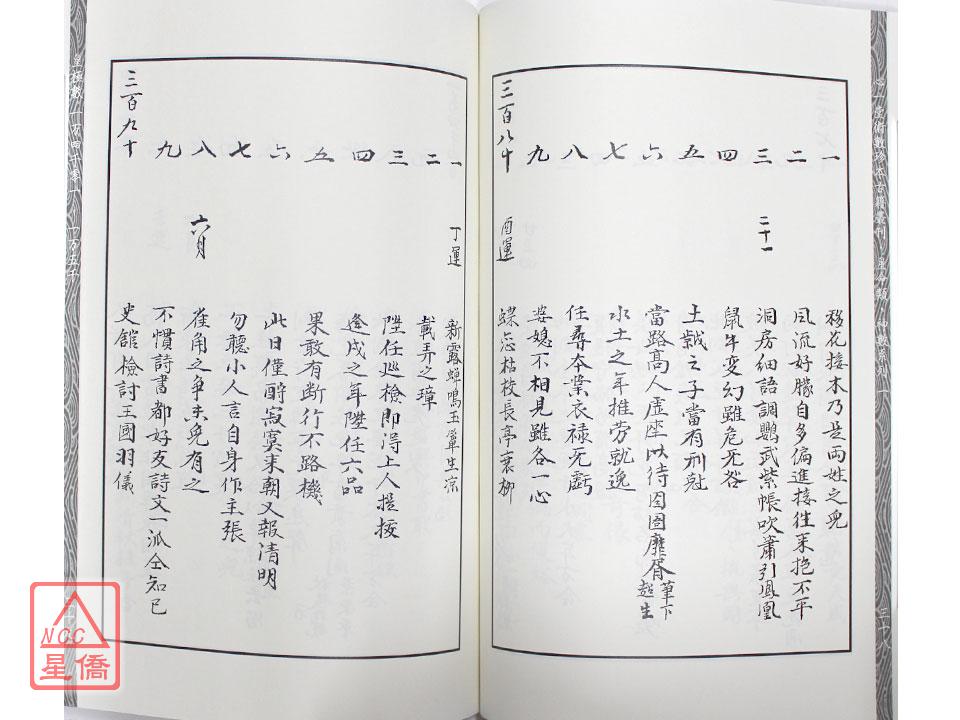 一 移花接木乃是兩姓之兒
二 風流好朦自多偏進接往來抱不平
三 二十一 洞房細語調鸚武紫帳吹簫引鳳凰
四 鼠牛變幻雖危无咎
五 土獄之子當有刑尅
六 當路高人虛座以待囹圄靡胥筆下超生
七 水土之年推勞就逸
八 任尋本業衣祿无虧
九 婆媳不相見雖各一心
三百八十 酉運 蝶恋枯枝長亭衰柳
一 丁運 新露蟬鳴玉簟生凉
二 載弄之璋
三 陞任巡檢即淂上人提拔
四 逢戌之年陞任六品
五 果敢有断行不路機
六 此日僅酧寂寞來朝又報清明
七 勿聽小人言自身作主張
八 六月 雀角之争未免有之
九 不慣詩書都好友詩文一派仝知已
三百九十 史舘檢討王國羽儀
皇極數 一万四千零一 一万五千
三十八
NCC
星僑